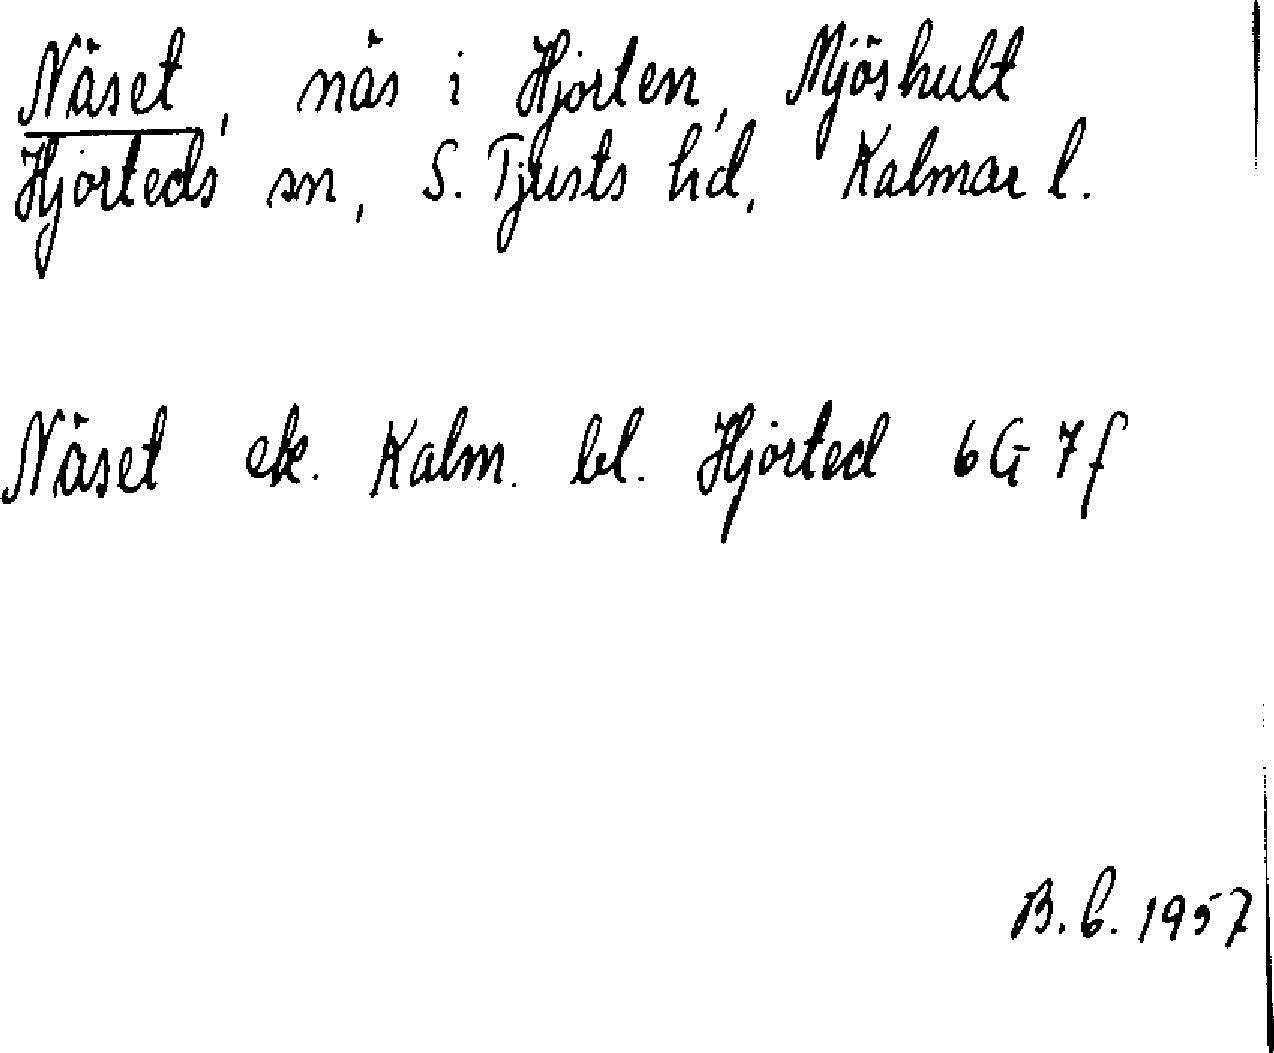 Näset, näs i Hjorten, Mjöshult
Hjorteds sn, S. Tjusts hd, Kalmar l.
Näset ek. Kalm. bl. Hjorted 6G 7f
B.G. 1957